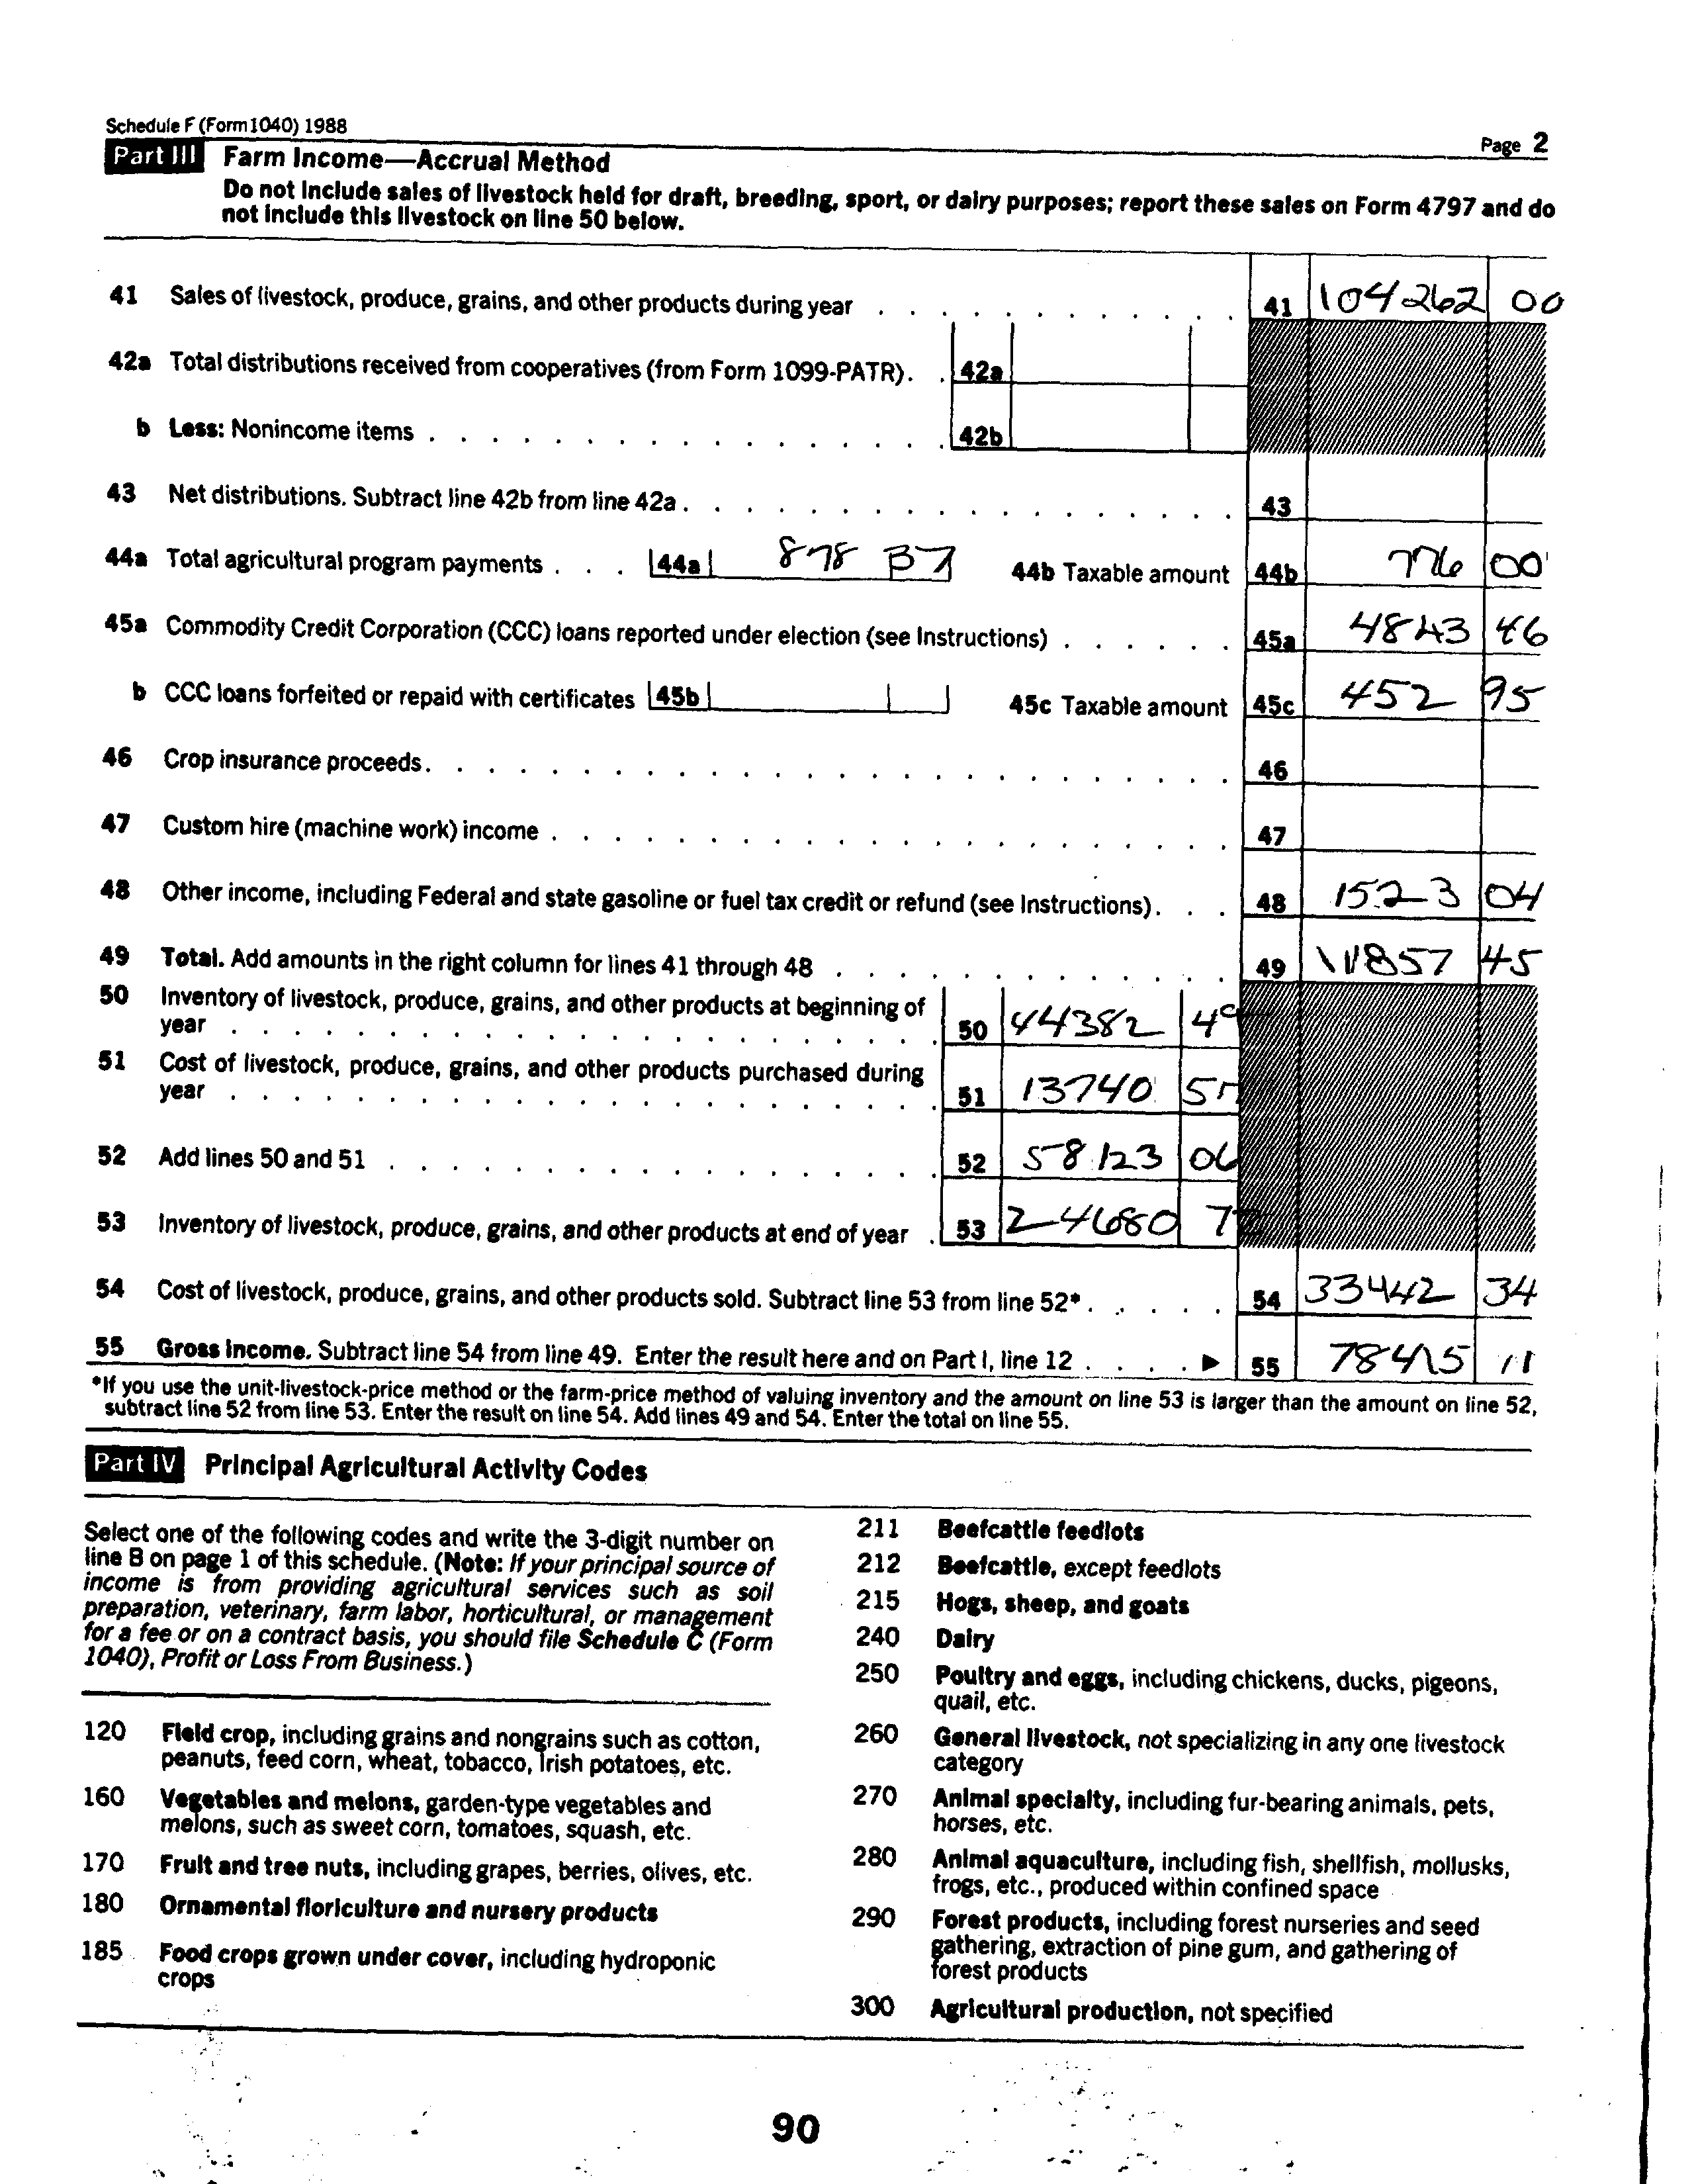 Schedule F (Form 1040) 1988
Page 2
Part III Farm Income—Accrual Method
Do not include sales of livestock held for draft, breeding, sport, or dairy purposes; report these sales on Form 4797 and do
not include this livestock on line 50 below.
41 Sales of livestock, produce, grains, and other products during year . . . . . . . . . . . . 41 104262 00
42a Total distributions received from cooperatives (from Form 1099-PATR). . 42a
b Less: Nonincome items . . . . . . . . . . . . . . . . . 42b
43 Net distributions. Subtract line 42b from line 42a . . . . . . . . . . . . . . . . . . 43
44a Total agricultural program payments . . . 44a 878 37 44b Taxable amount 44b 776 00
45a Commodity Credit Corporation (CCC) loans reported under election (see Instructions) . . . . . . 45a 4843 46
b CCC loans forfeited or repaid with certificates 45b 45c Taxable amount 45c 452 95
46 Crop insurance proceeds. . . . . . . . . . . . . . . . . . . . . . . . . . 46
47 Custom hire (machine work) income . . . . . . . . . . . . . . . . . . . . . . 47
48 Other income, including Federal and state gasoline or fuel tax credit or refund (see Instructions). . . 48 1523 04
49 Total. Add amounts in the right column for lines 41 through 48 . . . . . . . . . . . . . 49 111857 45
50 Inventory of livestock, produce, grains, and other products at beginning of
year . . . . . . . . . . . . . . . . . . . . . . . 50 44382 49
51 Cost of livestock, produce, grains, and other products purchased during
year . . . . . . . . . . . . . . . . . . . . . . . 51 13740 57
52 Add lines 50 and 51 . . . . . . . . . . . . . . . . . . 52 58123 06
53 Inventory of livestock, produce, grains, and other products at end of year . 53 24680 72
54 Cost of livestock, produce, grains, and other products sold. Subtract line 53 from line 52* . . . . . 54 33442 34
55 Gross income. Subtract line 54 from line 49. Enter the result here and on Part I, line 12 . . . . ▶ 55 78415 11
*If you use the unit-livestock-price method or the farm-price method of valuing inventory and the amount on line 53 is larger than the amount on line 52,
subtract line 52 from line 53. Enter the result on line 54. Add lines 49 and 54. Enter the total on line 55.
Part IV Principal Agricultural Activity Codes
Select one of the following codes and write the 3-digit number on
line B on page 1 of this schedule. (Note: If your principal source of
income is from providing agricultural services such as soil
preparation, veterinary, farm labor, horticultural, or management
for a fee or on a contract basis, you should file Schedule C (Form
1040), Profit or Loss From Business.)
120 Field crop, including grains and nongrains such as cotton,
peanuts, feed corn, wheat, tobacco, Irish potatoes, etc.
160 Vegetables and melons, garden-type vegetables and
melons, such as sweet corn, tomatoes, squash, etc.
170 Fruit and tree nuts, including grapes, berries, olives, etc.
180 Ornamental floriculture and nursery products
185 Food crops grown under cover, including hydroponic
crops
211 Beefcattle feedlots
212 Beefcattle, except feedlots
215 Hogs, sheep, and goats
240 Dairy
250 Poultry and eggs, including chickens, ducks, pigeons,
quail, etc.
260 General livestock, not specializing in any one livestock
category
270 Animal specialty, including fur-bearing animals, pets,
horses, etc.
280 Animal aquaculture, including fish, shellfish, mollusks,
frogs, etc., produced within confined space
290 Forest products, including forest nurseries and seed
gathering, extraction of pine gum, and gathering of
forest products
300 Agricultural production, not specified
90